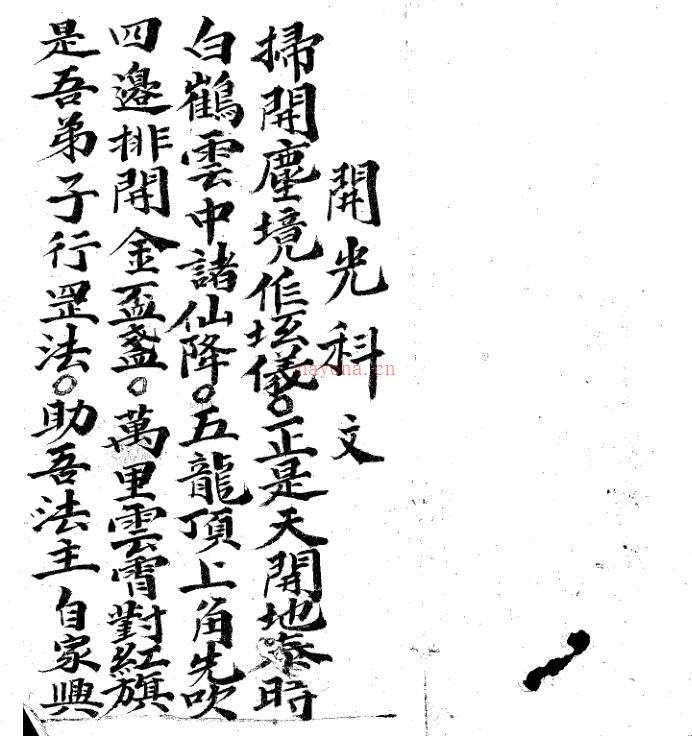 開光科文
掃開塵境作坛儀。正是天開地泰時
白鶴雲中諸仙降。五龍頂上角先吹
四邊排開金盃盞。萬里雲霄對紅旗
是吾弟子行罡法。助吾法主自家興
nayona.cn